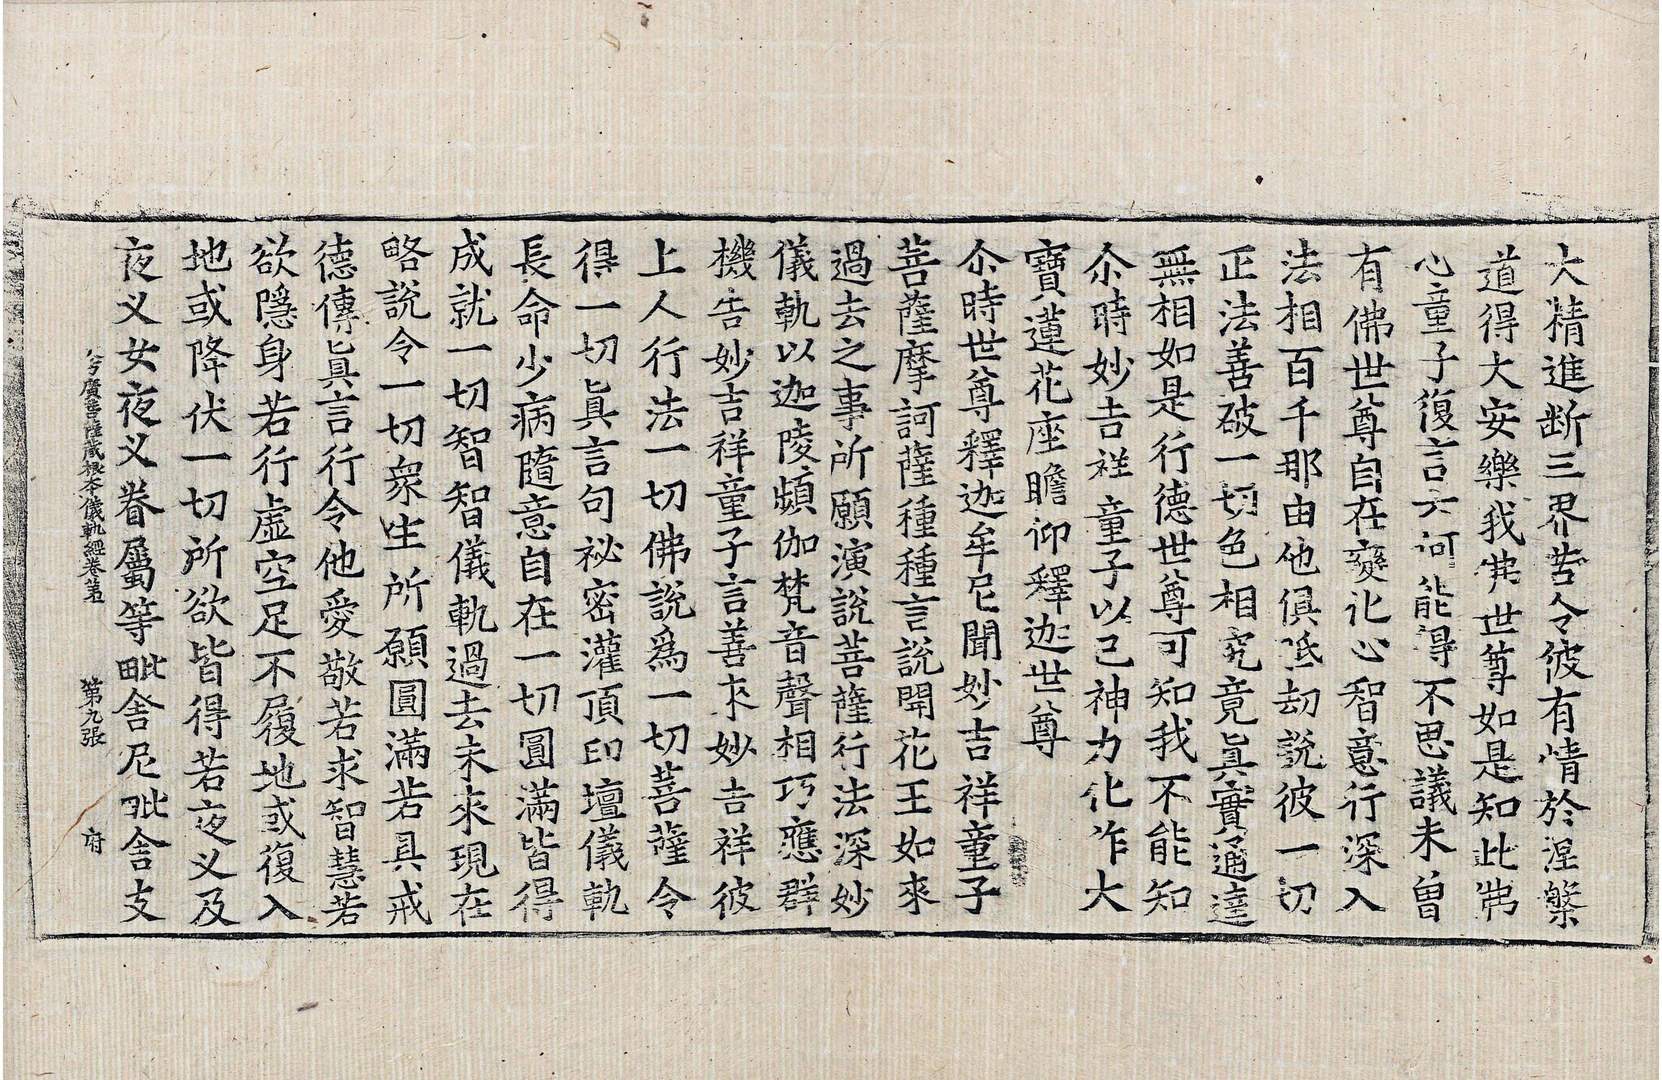 大精進断三界苦令彼有情於涅槃
道得大安樂我佛世尊如是知此佛
心童子復言云何能得不思議未曾
有佛世尊自在變化心智意行深入
法相百千那由他俱胝劫說彼一切
正法善破一切色相究竟真實通達
無相如是行德世尊可知我不能知
尒時妙吉祥童子以己神力化作大
寶蓮花座瞻仰釋迦世尊
尒時世尊釋迦牟尼聞妙吉祥童子
菩薩摩訶薩種種言說開花王如來
過去之事所願演說菩薩行法深妙
儀軌以迦陵頻伽梵音聲相巧應群
機告妙吉祥童子言善來妙吉祥彼
上人行法一切佛說為一切菩薩令
得一切眞言句祕密灌頂印壇儀軌
長命少病隨意自在一切圓滿皆得
成就一切智智儀軌過去未來現在
略說令一切衆生所願圓滿若具戒
德傳眞言行令他愛敬若求智慧若
欲隱身若行虛空足不履地或復入
地或降伏一切所欲皆得若夜叉及
夜叉女夜叉眷屬等毗舍尼毗舍支
廣菩薩藏根本儀軌經卷第 第九張 府